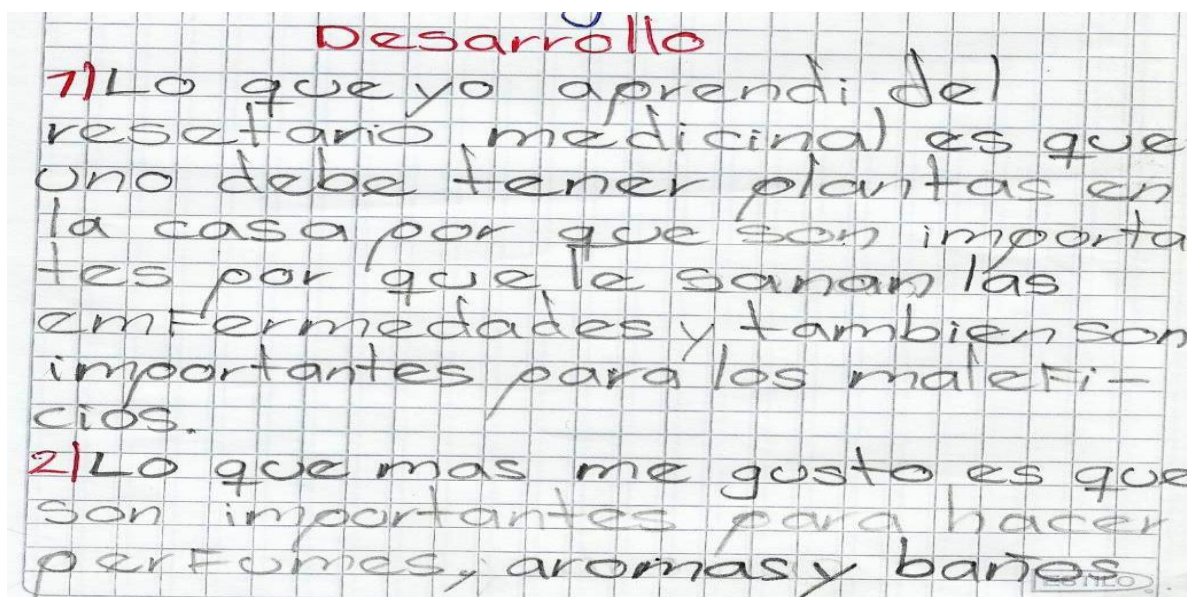 Desarrollo
1) Lo que yo aprendi del
resetario medicinal es que
uno debe tener plantas en
la casa por que son importa
tes por que le sanan las
emfermedades y tambien son
importantes para los malefi-
cios.
2) Lo que mas me gusto es que
son importantes para hacer
perfumes, aromas y baños